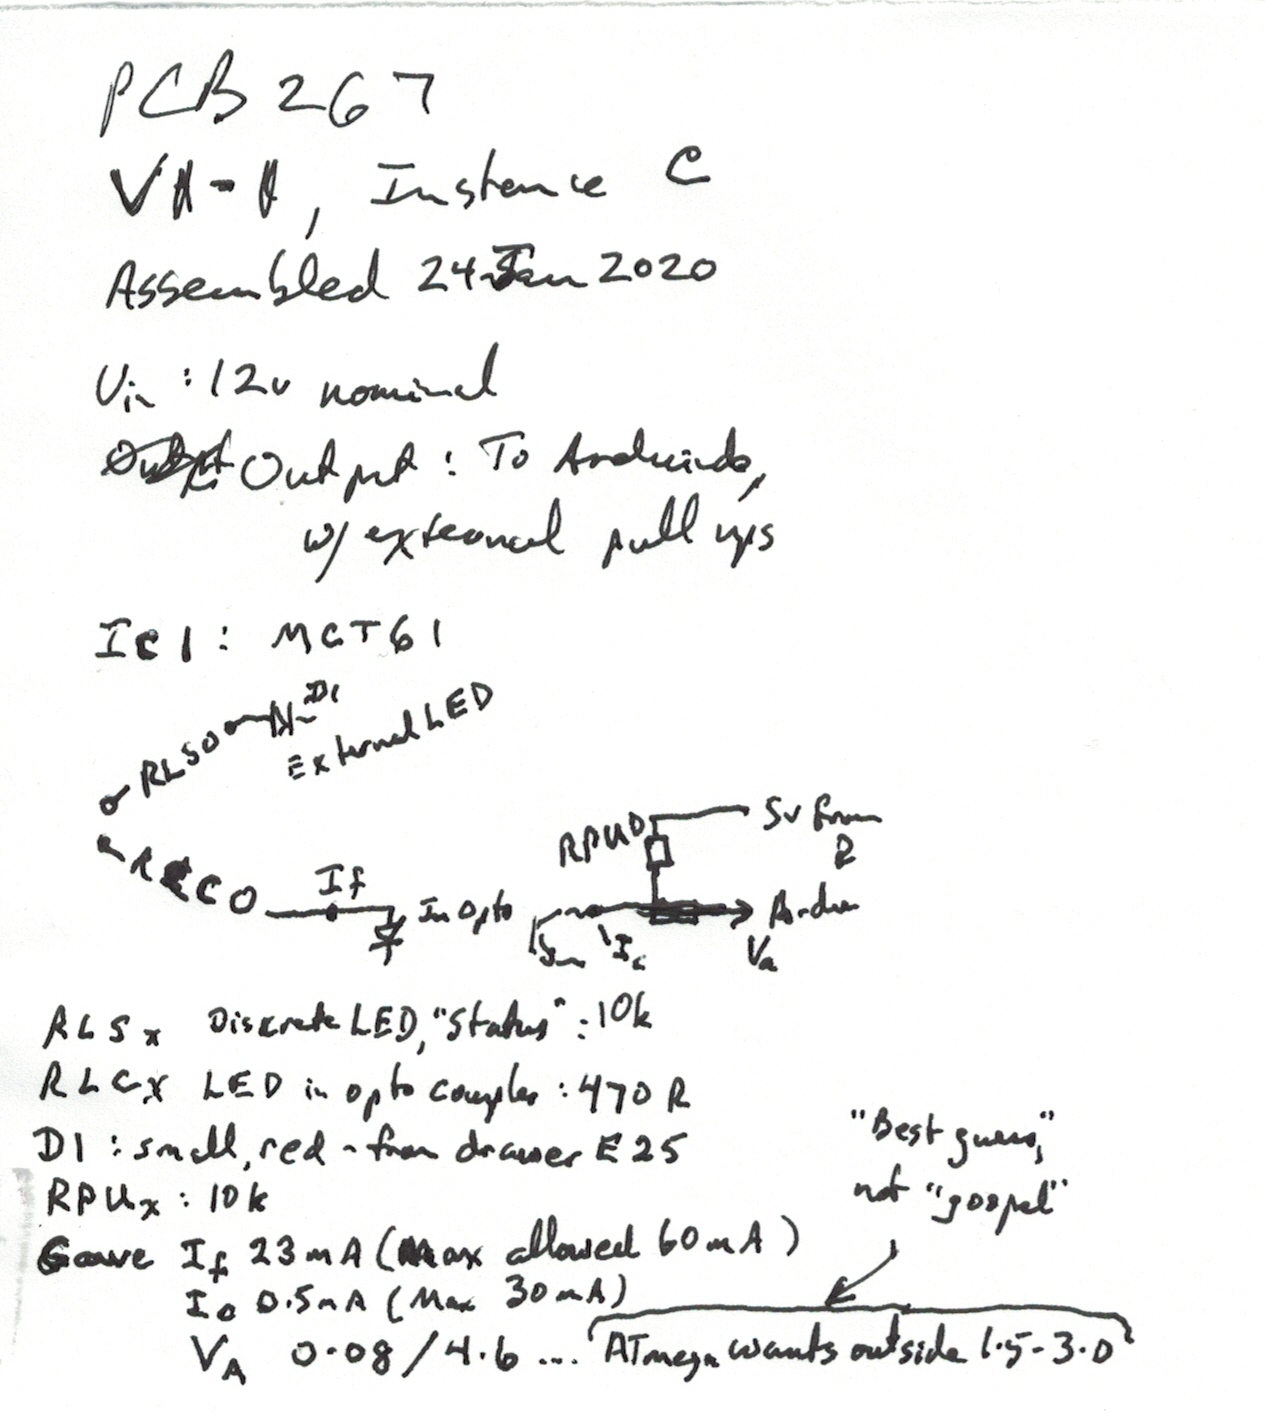 PCB 267
VA-A, Instance C
Assembled 24 Jan 2020
Vin : 12v nominal
Output : To Arduino,
w/ external pull ups
IC1 : MCT61
D1
RLS0
External LED
RLC0
If
In Opto
RPU0
5v from
Ic
Ardu
Va
RLSx Discrete LED, "Status" : 10k
RLCx LED in opto coupler : 470 R
D1 : small, red - from drawer E25
RPUx : 10k
"Best guess,"
not "gospel"
Gave If 23mA (Max allowed 60mA)
Ic 0.5mA (Max 30mA)
VA 0.08/4.6 ... ATmega wants outside 1.5-3.0